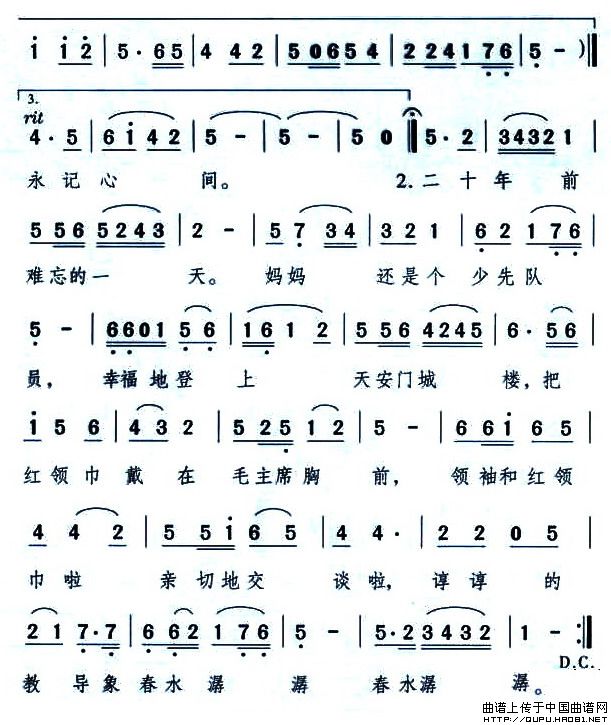 i i 2 | 5 · 6 5 | 4 4 2 | 5 0 6 5 4 | 2 2 4 1 7 6 | 5 - )
3.
rit
4 · 5 | 6 i 4 2 | 5 - | 5 - | 5 0 | 5 · 2 | 3 4 3 2 1
永记心 间。 2.二十年 前
5 5 6 5 2 4 3 | 2 - | 5 7 3 4 | 3 2 1 | 6 2 1 7 6
难忘的一 天。妈妈 还是个 少先队
5 - | 6 6 0 1 5 6 | 1 6 1 2 | 5 5 6 4 2 4 5 | 6 · 5 6
员, 幸福地登 上 天安门城 楼,把
i 5 6 | 4 3 2 | 5 2 5 1 2 | 5 - | 6 6 i 6 5
红领巾 戴 在 毛主席胸 前, 领袖和红领
4 4 2 | 5 5 i 6 5 | 4 4 · | 2 2 0 5
巾啦 亲切地交 谈啦,谆谆的
2 1 7 · 7 | 6 6 2 1 7 6 | 5 - | 5 · 2 3 4 3 2 | 1 - :
D.C.
教导象春水潺 潺 春水潺 潺。
曲谱上传于中国曲谱网
http://QUPU.HAO81.NET